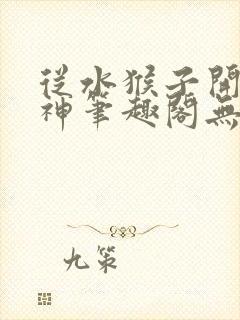 從水猴子開
神筆趣閣無
九策